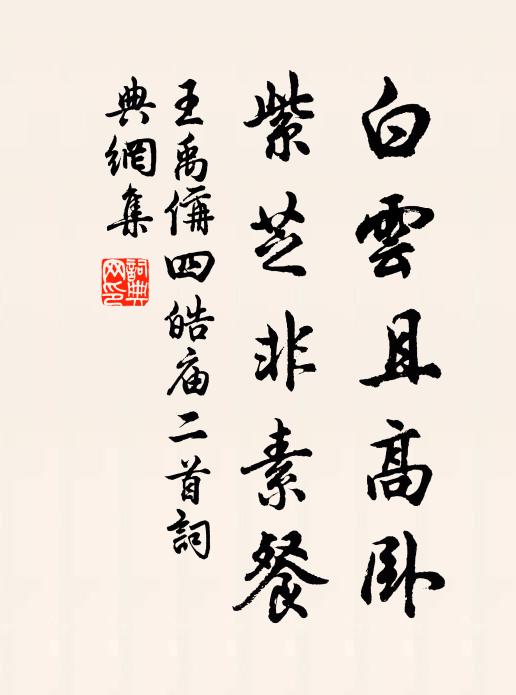 白雲且高卧
紫芝非素餐
王禹偁四皓庙二首詞
典網集
詞典网印